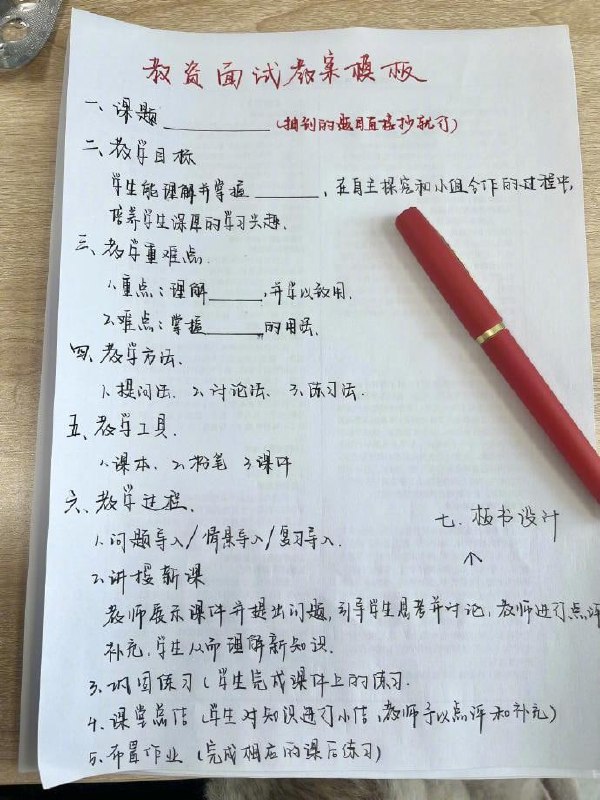 教资面试教案模板
一、课题________(抽到的题目直接抄就行)
二、教学目标
学生能理解并掌握______,在自主探究和小组合作的过程中,
培养学生深厚的学习兴趣.
三、教学重难点.
1.重点:理解______,并学以致用.
2.难点:掌握______的用法.
四、教学方法.
1.提问法. 2.讨论法. 3.练习法.
五、教学工具.
1.课本. 2.粉笔 3.课件
六、教学过程.
1.问题导入/情景导入/复习导入.
2.讲授新课
教师展示课件并提出问题,引导学生思考并讨论,教师进行点评
补充,学生从而理解新知识.
3.巩固练习(学生完成课件上的练习.
4.课堂总结(学生对知识进行小结,教师予以点评和补充)
5.布置作业(完成相应的课后练习)
七.板书设计
↑